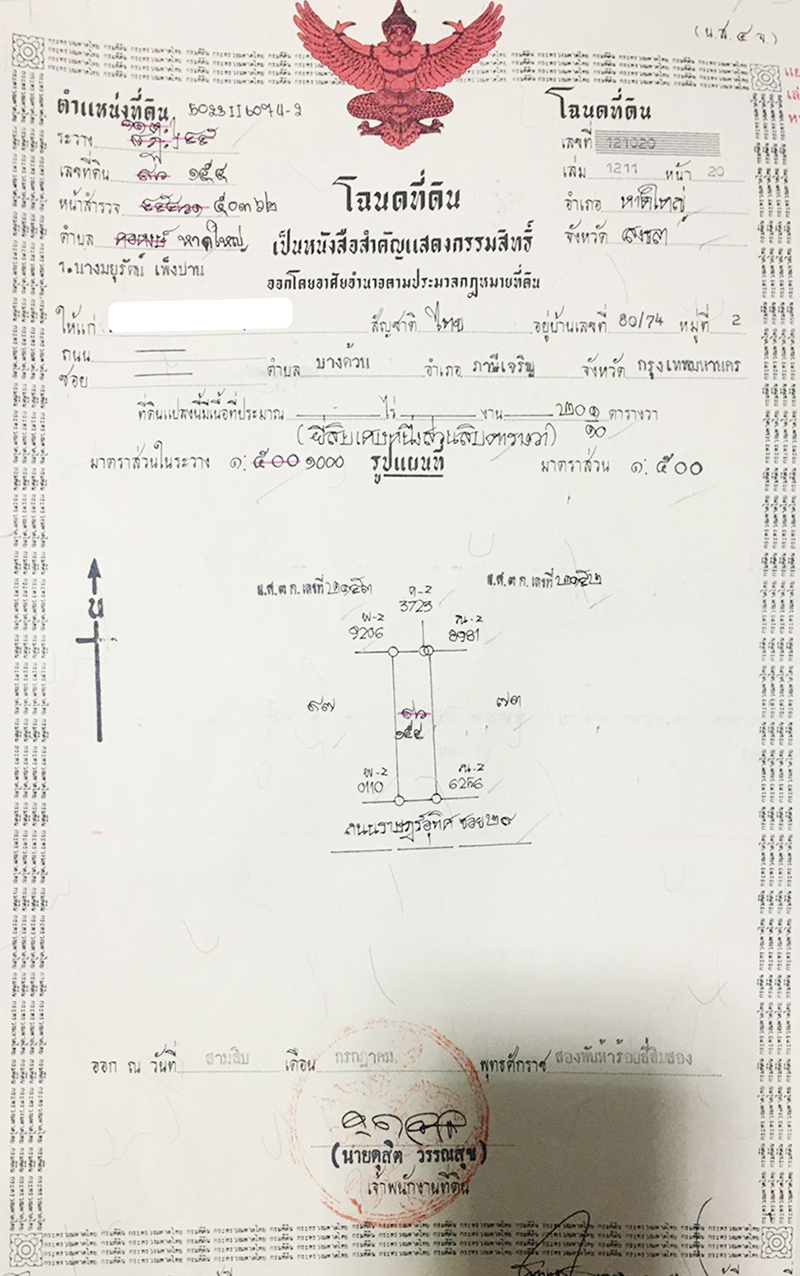 (น.ส.๔ จ.)
ตำแหน่งที่ดิน 5023 II 6074-2
ระวาง
เลขที่ดิน ๑๕๔
หน้าสำรวจ ๕๐๓๖๒
ตำบล หาดใหญ่
โฉนดที่ดิน
เลขที่ 121020
เล่ม 1211 หน้า 20
อำเภอ หาดใหญ่
จังหวัด สงขลา
โฉนดที่ดิน
เป็นหนังสือสำคัญแสดงกรรมสิทธิ์
ออกโดยอาศัยอำนาจตามประมวลกฎหมายที่ดิน
๑.นางมยุรัตน์ เพ็งปาน
ให้แก่ สัญชาติ ไทย อยู่บ้านเลขที่ 80/74 หมู่ที่ 2
ถนน
ซอย ตำบล บางด้วน อำเภอ ภาษีเจริญ จังหวัด กรุงเทพมหานคร
ที่ดินแปลงนี้มีเนื้อที่ประมาณ ไร่ งาน ๒๐ ๑/๑๐ ตารางวา
(ยี่สิบเศษหนึ่งส่วนสิบตารางวา)
มาตราส่วนในระวาง ๑:๕๐๐ ๑๐๐๐ รูปแผนที่ มาตราส่วน ๑:๕๐๐
น
ย.ส.ต ก.เลขที่ ย.ส.ต ก.เลขที่ ๒๑๕๒
3723
9206 8981
๙๗ ๗๓
๑๕๔
0110 6256
ถนนราษฎร์อุทิศ ซอย ๒๙
ออก ณ วันที่ สามสิบ เดือน กรกฎาคม พุทธศักราช สองพันห้าร้อยสี่สิบสอง
(นายดุสิต วรรณสุข)
เจ้าพนักงานที่ดิน